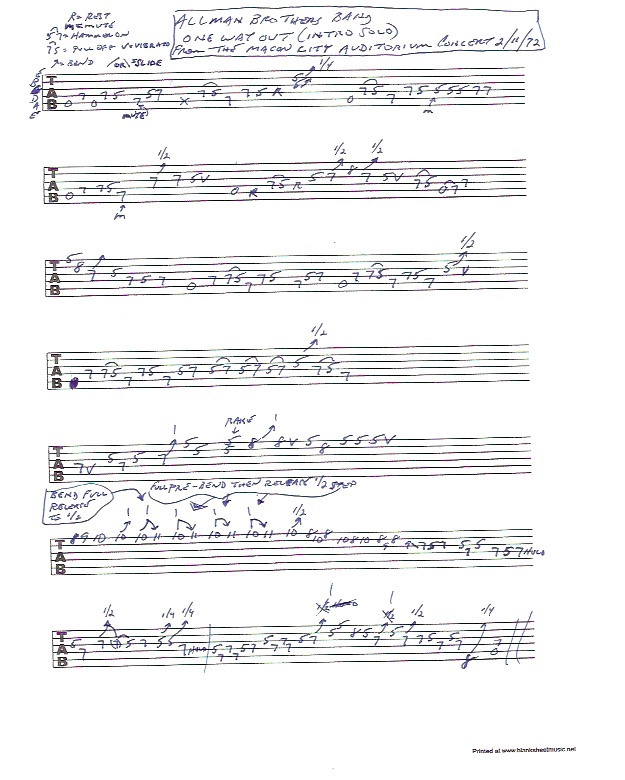 R = REST
M = MUTE
5 7 = HAMMERON
7 5 = PULL OFF V=VIBRATO
↗ = BEND / OR \ SLIDE
ALLMAN BROTHERS BAND
ONE WAY OUT (INTRO SOLO)
FROM THE MACON CITY AUDITORIUM CONCERT 2/11/72
E B G D A E
TAB 0 7 0 7 5 7 5 7 X 7 5 7 7 5 R 5 5 1/4 0 7 5 7 7 5 5 5 5 7 7
(MUTE) m
1/2 1/2 1/2
TAB 0 7 7 5 7 7 7 5 V 0 R 7 5 R 5 7 8 7 5 V 7 5 0 7 7
m
1/2
TAB 5 8 7 5 7 5 7 0 7 7 5 7 7 5 7 5 7 0 7 7 5 7 7 5 7 5 V
1/2
TAB 7 7 5 7 7 5 7 5 7 5 7 5 7 5 7 5 7 5 7
1 RAKE 1
TAB 7 V 5 7 5 7 5 5 5 5 8 8 V 5 8 5 5 5 V
BEND FULL
RELEASE
TO 1/2
FULL PRE-BEND THEN RELEASE 1/2 STEP
1 1 1 1 1 1/2
TAB 8 9 10 10 10 11 10 11 10 11 10 11 10 10 8 10 8 10 8 10 8 9 8 9 7 5 7 5 7 5 7 5 7 HOLD
1/2 1/4 1/4 1 1/2 1/4
TAB 5 7 7 (7) 5 7 5 5 7 HOLD 5 7 7 5 7 5 7 7 5 7 5 5 8 5 7 5 7 7 5 7 5 7 8 0 7
Printed at www.blanksheetmusic.net